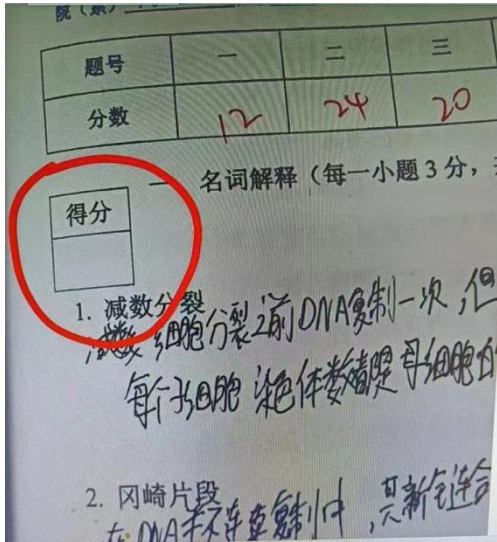 院（系）
题号 一 二 三
分数 12 24 20
一 名词解释（每一小题 3 分，
得分
1. 减数分裂
细胞分裂之前DNA复制一次，但
每个子细胞 染色体数 母细胞的
2. 冈崎片段
在DNA 复制中，其新 连合